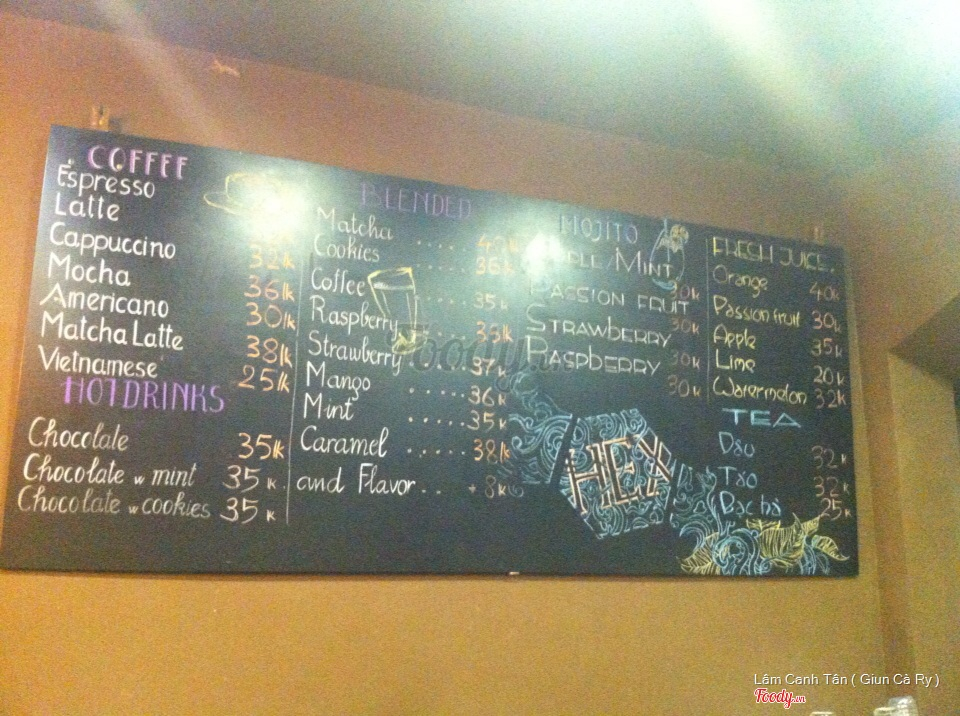 COFFEE
Espresso
Latte
Cappuccino 32k
Mocha 36k
Americano 30k
Matcha Latte 38k
Vietnamese 25k
HOT DRINKS
Chocolate 35k
Chocolate w mint 35k
Chocolate w cookies 35k
BLENDED
Matcha ..... 40k
Cookies ..... 36k
Coffee ..... 35k
Raspberry 36k
Strawberry .... 37k
Mango ..... 36k
Mint ..... 35k
Caramel ..... 38k
and Flavor .. + 8k
MOJITO
Apple Mint 30k
PASSION FRUIT 30k
STRAWBERRY 30k
RASPBERRY 30k
HEX
FRESH JUICE.
Orange 40k
Passion fruit 30k
Apple 35k
Lime 20k
Watermelon 32k
TEA
Dâu 32k
Táo 32k
Bạc hà 25k
Foody.vn
Lâm Canh Tân ( Giun Cà Ry )
Foody.vn